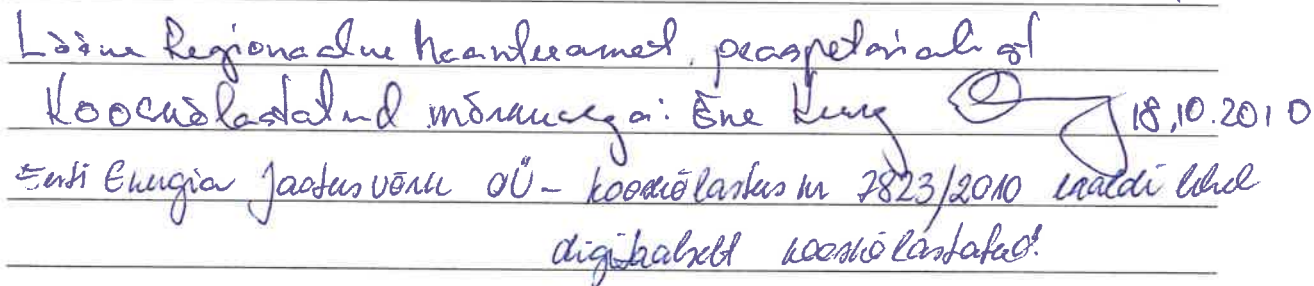 Lääne Regionaalne Maanteeamet, peaspetsialist
Kooskõlastatud märkusega: Ene Kurg 18.10.2010
Eesti Energia Jaotusvõrk OÜ - kooskõlastus nr 7823/2010 eraldi lehel
digitaalselt kooskõlastatud.